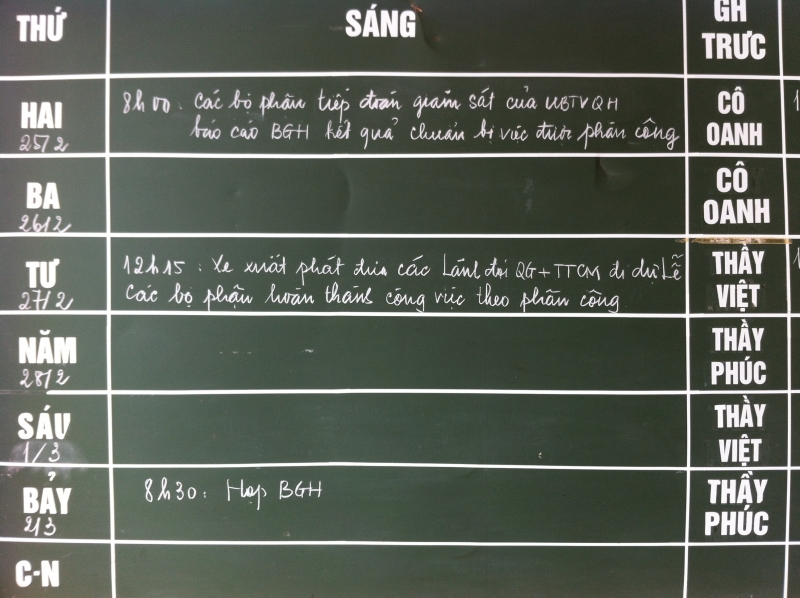 THỨ
SÁNG
GH
TRỰC
HAI
25/2
8h00: Các bộ phận tiếp đoàn giám sát của UBTVQH
báo cáo BGH kết quả chuẩn bị việc được phân công
CÔ
OANH
BA
26/2
CÔ
OANH
TƯ
27/2
12h15: Xe xuất phát đưa các Lãnh đội QG+TTCM đi dự Lễ
Các bộ phận hoàn thành công việc theo phân công
THẦY
VIỆT
NĂM
28/2
THẦY
PHÚC
SÁU
1/3
THẦY
VIỆT
BẢY
2/3
8h30: Họp BGH
THẦY
PHÚC
C-N